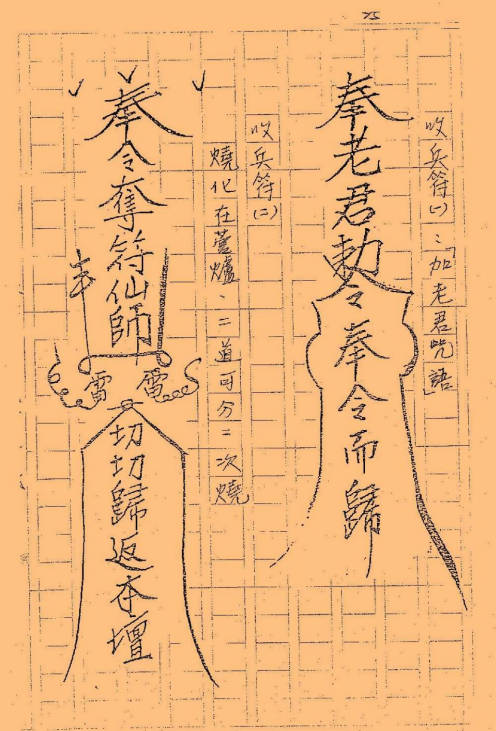 75
收兵符(一)：「加老君咒語」
奉老君勅令奉令而歸
收兵符(二)
燒化在薹爐、二道可分二次燒
奉令奪符仙師
雷 雷
切切歸返本壇